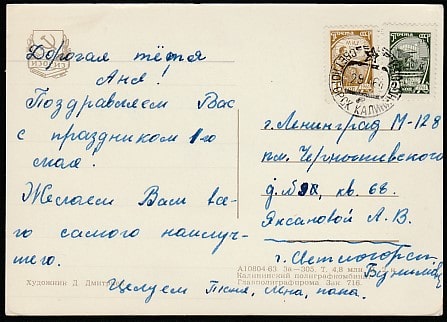 Дорогая тётя
Аня!
Поздравляем Вас
с праздником 1-го
мая!
Желаем Вам все-
го самого наилуч-
шего.
Целуем Лена, папа.
г. Ленинград М-128
пл. Чернышевского
кв. 68.
Яксановой А. В.
г. Светлогорск
ПОЧТА
ПОЧТА
Художник Д.
А10804-63 За-305. Т. 4,8 млн
Калининский полиграфкомбинат
Главполиграфпрома Зак. 716.